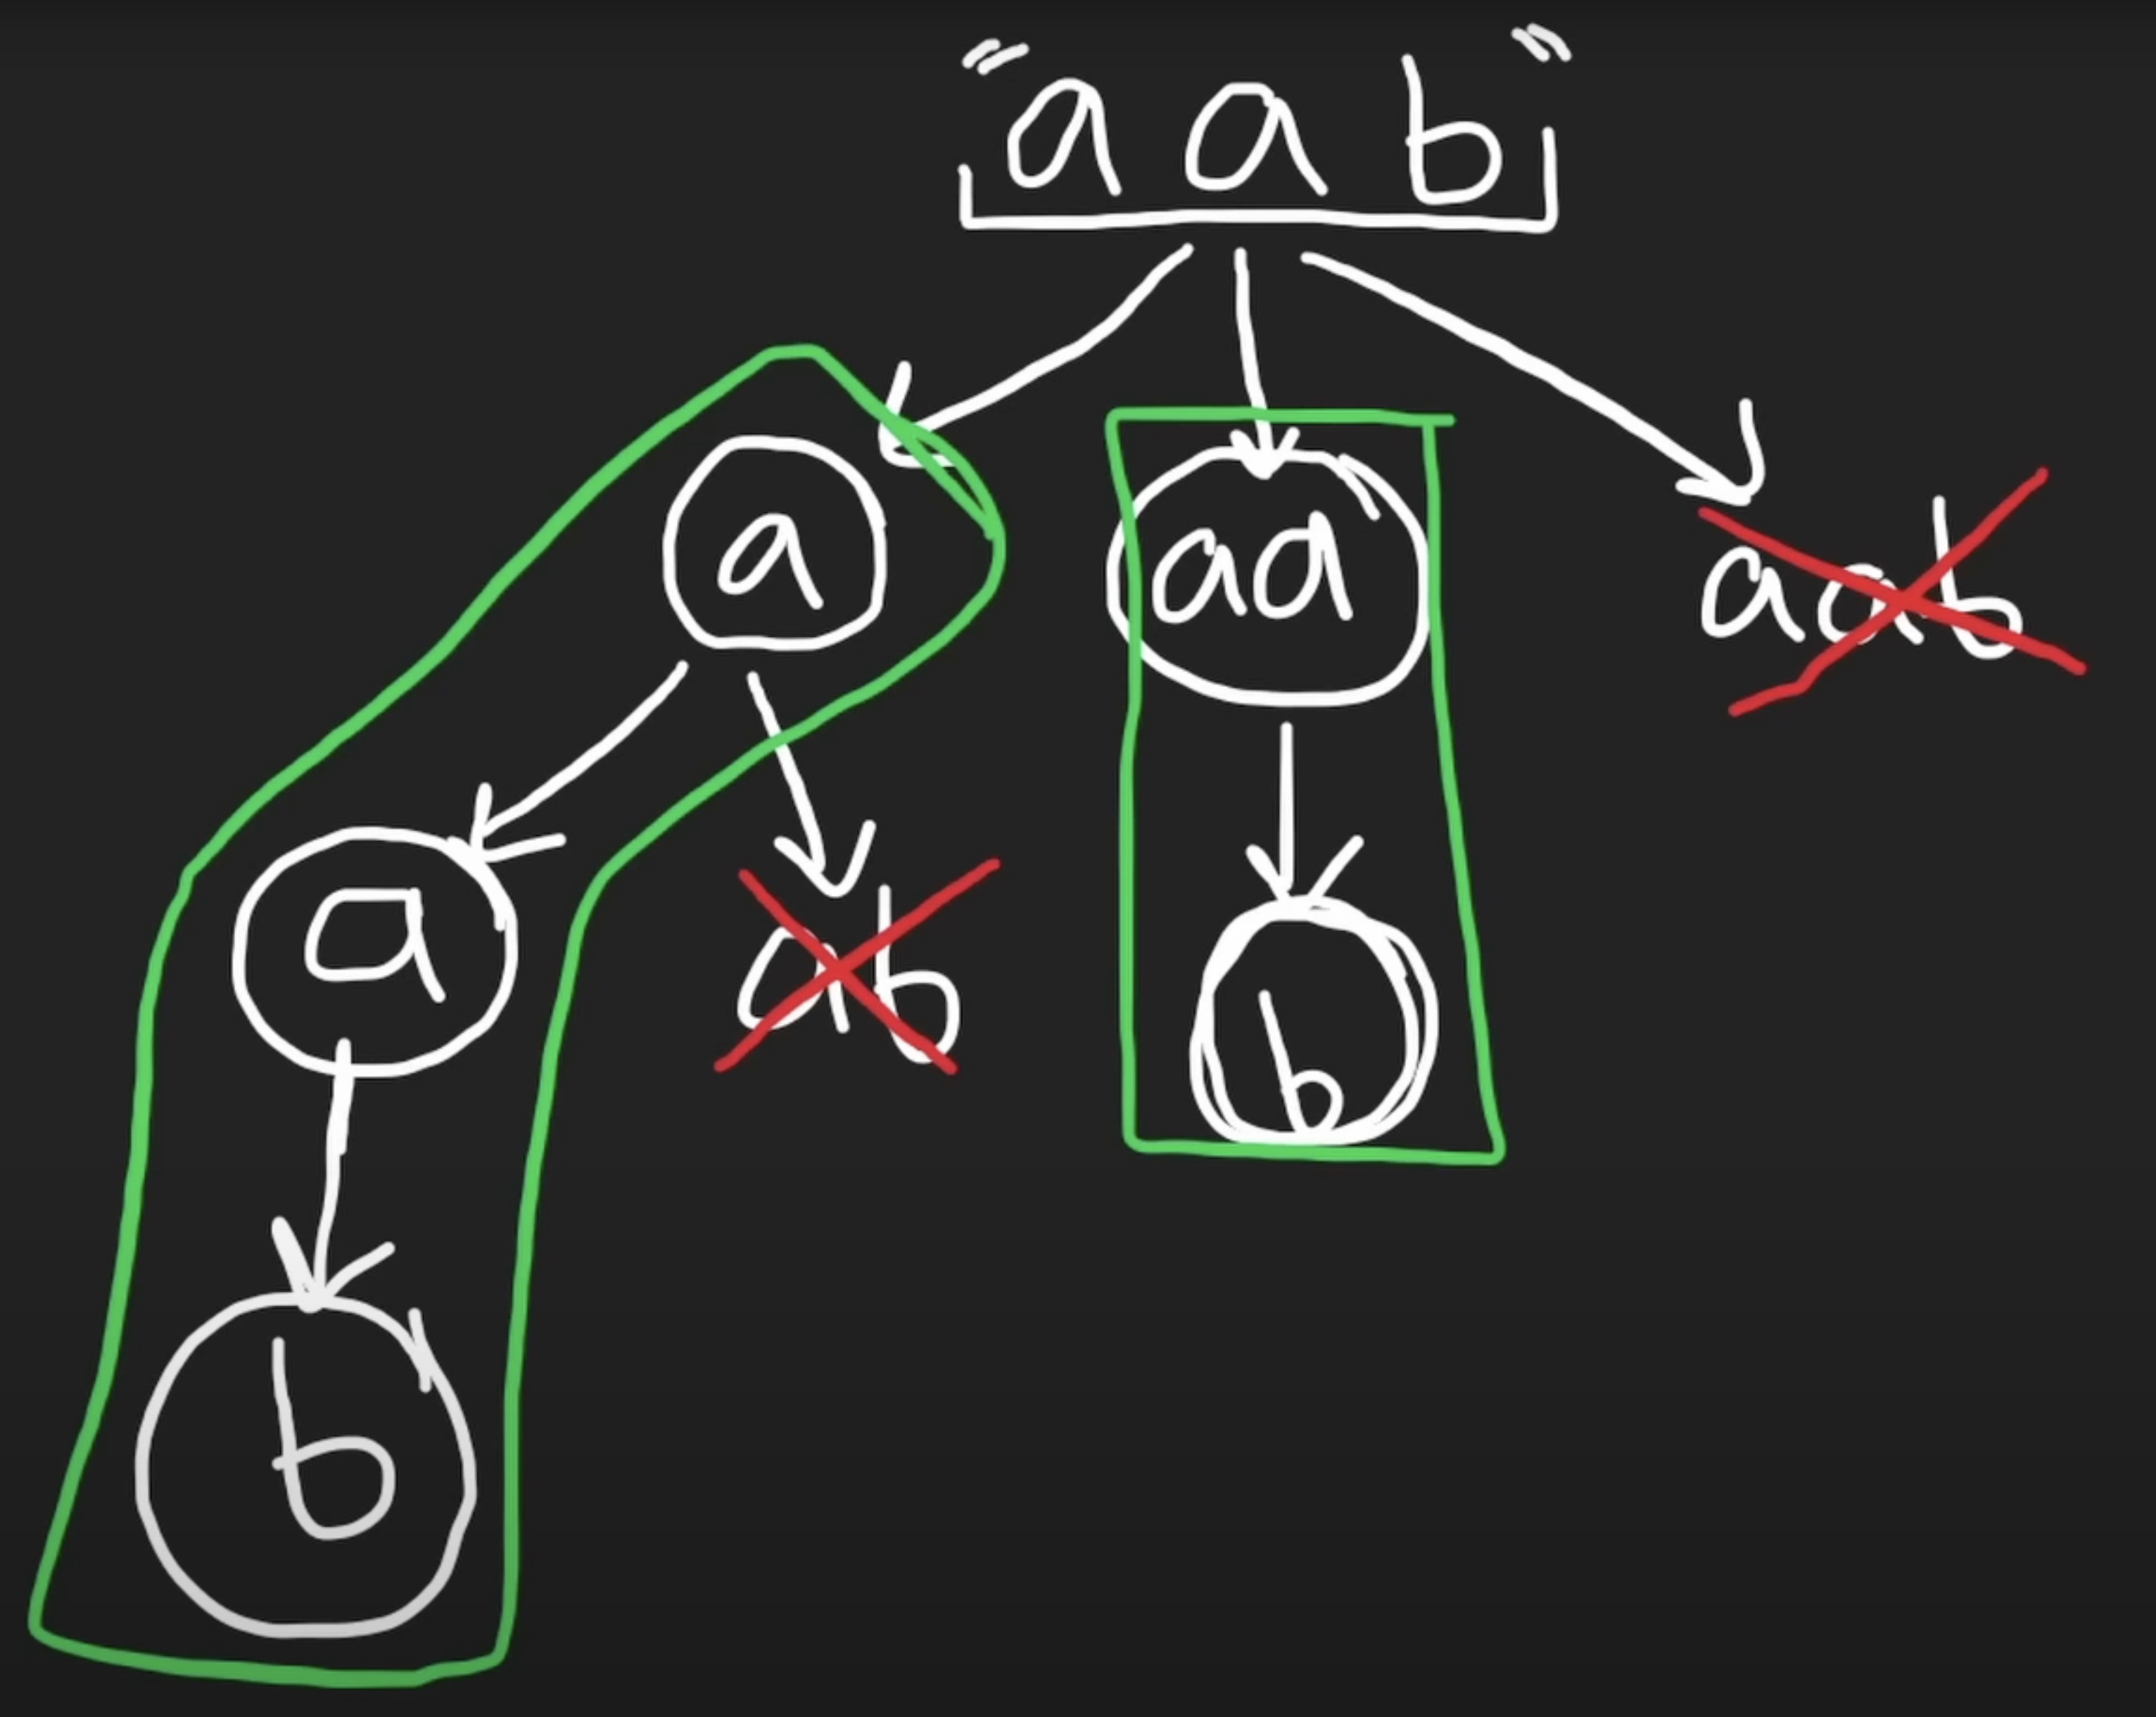 "aab"
a
aa
aab
a
ab
b
b